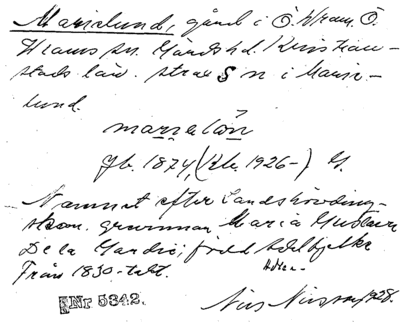 Marielund, gård i Ö. Vram, Ö.
Vrams sn. Gärds hd. Kristian-
stads län. strax S n i Marie-
lund.
marialón
fb. 1874, (Kbr. 1926–) G.
Namnet efter Landshövding-
skan. grevinnan Maria Gustava
De la Gardie; född Adelhjelke
Från 1830-talet. Adlers-
Nr 5342.
Nils Nilsson, 1928.